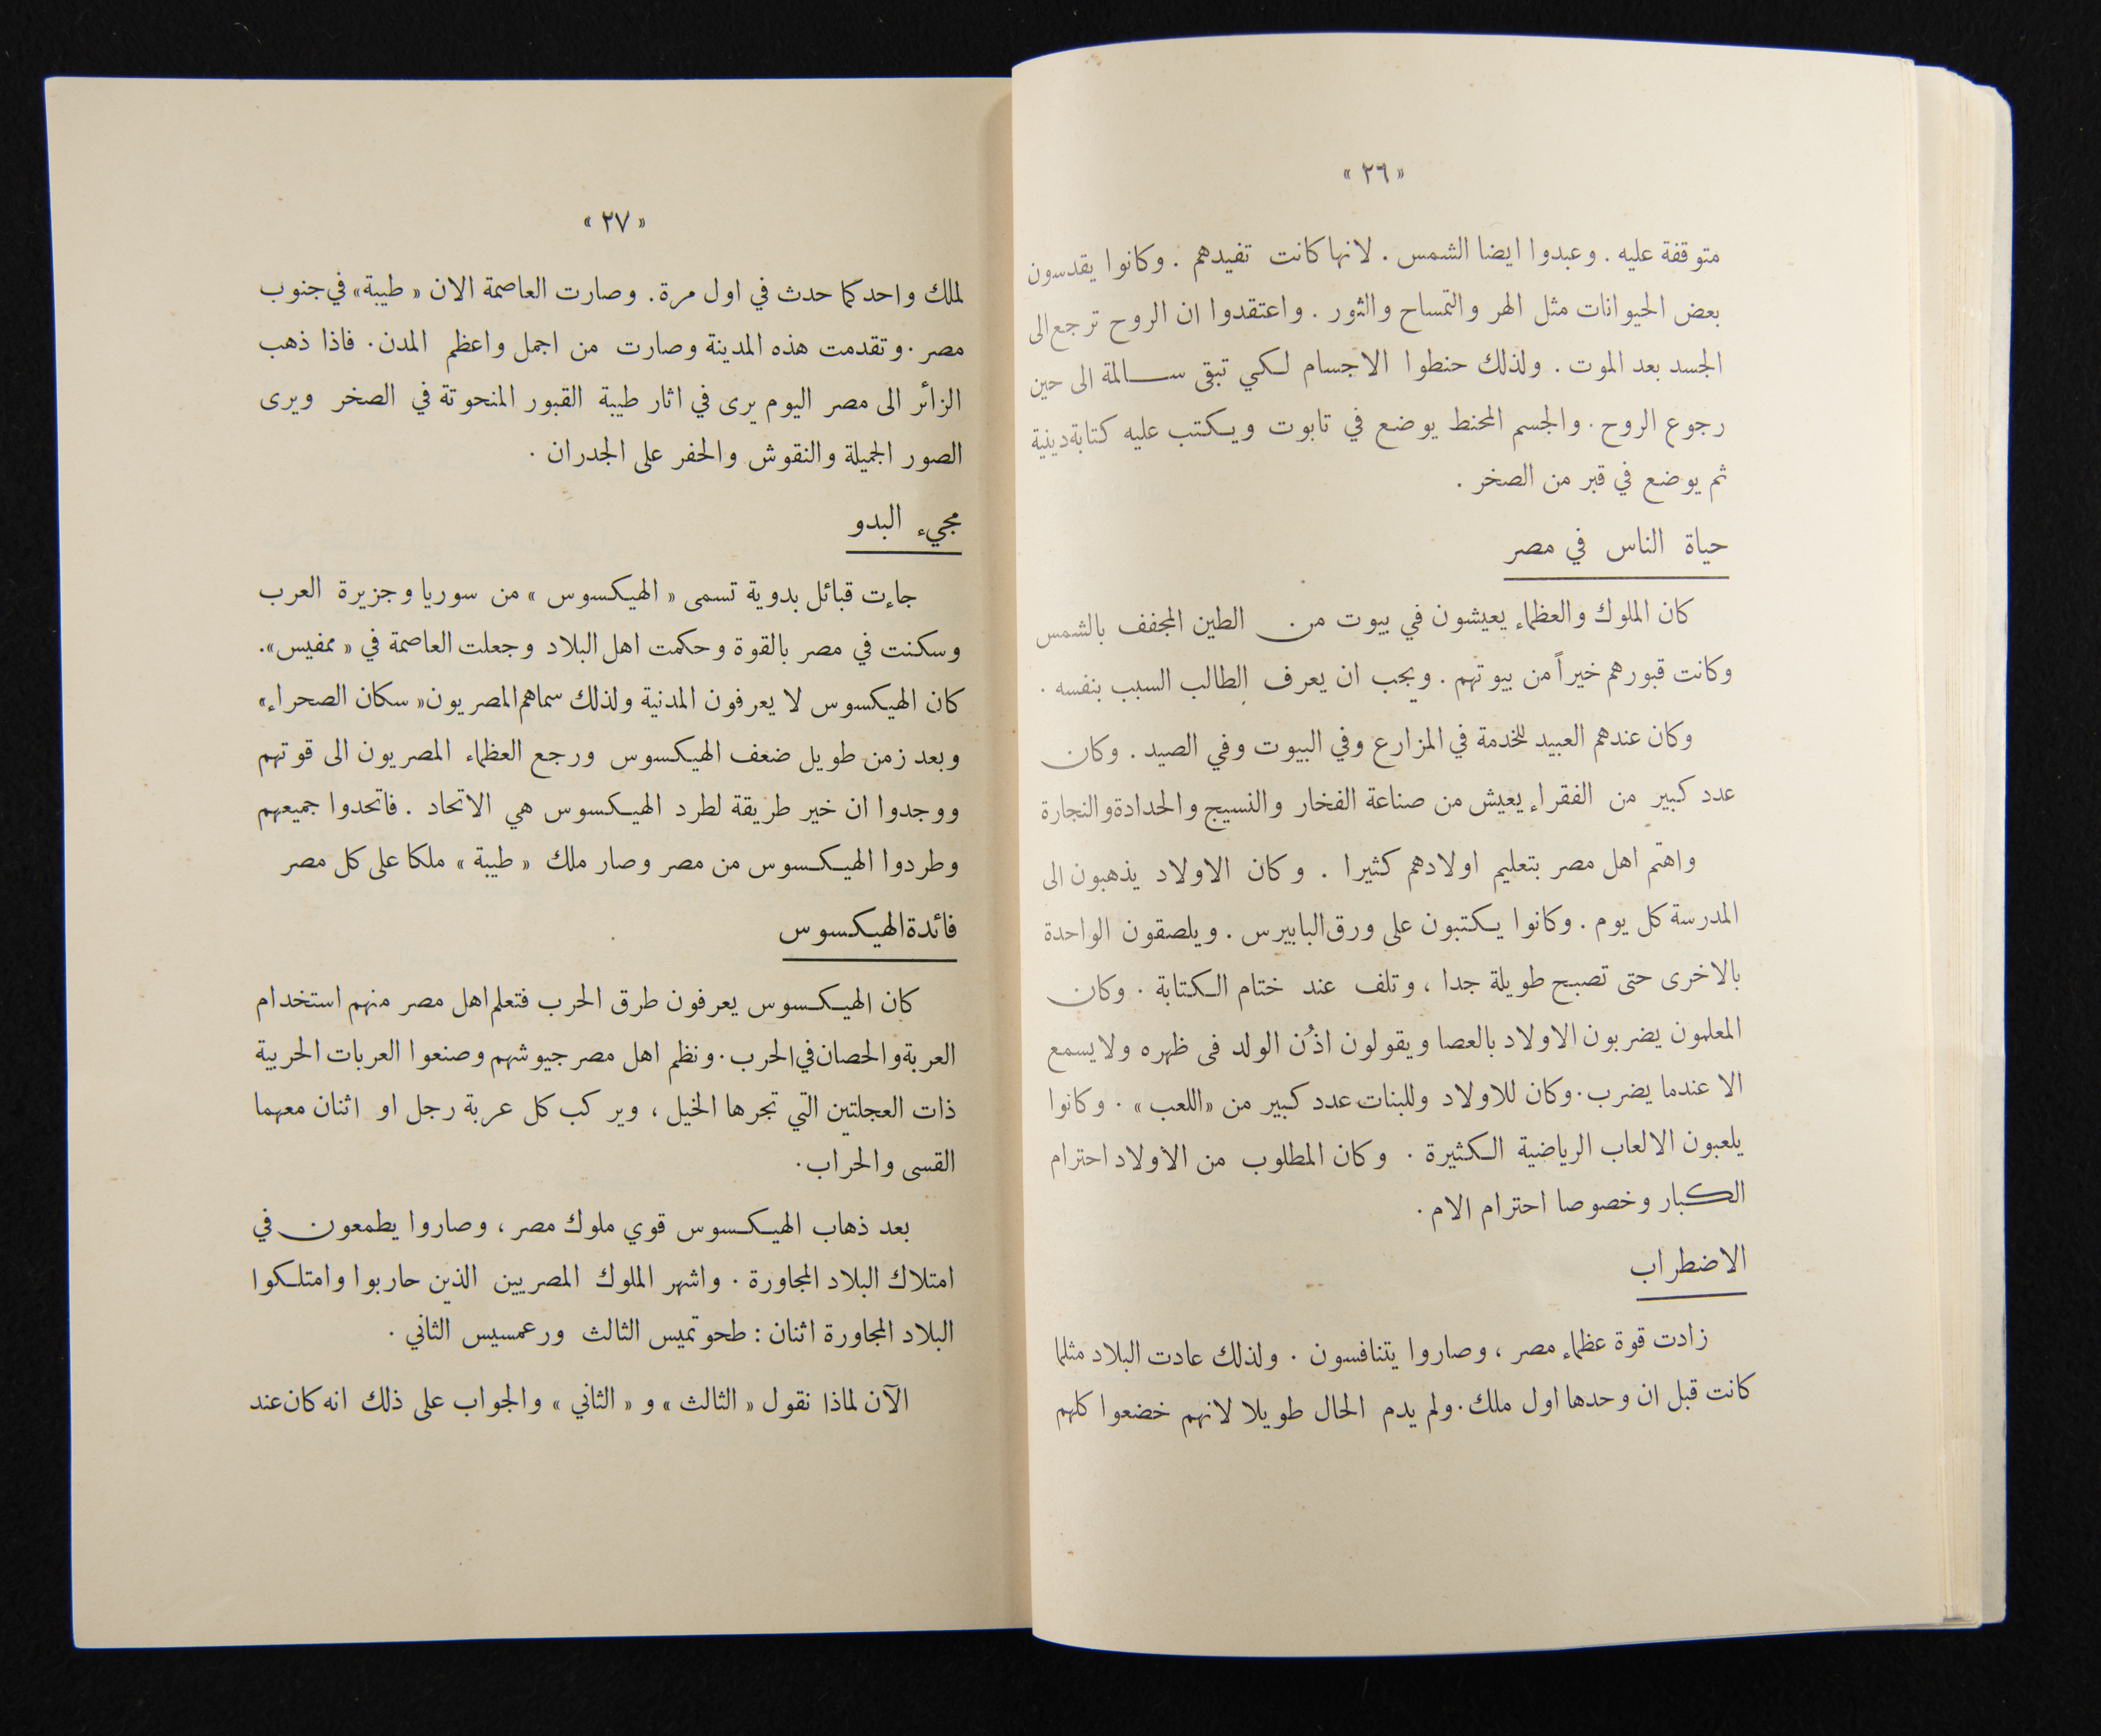 « ٢٦ »
متوقفة عليه . وعبدوا ايضا الشمس . لانها كانت تفيدهم . وكانوا يقدسون
بعض الحيوانات مثل الهر والتمساح والثور . واعتقدوا ان الروح ترجع الى
الجسد بعد الموت . ولذلك حنطوا الاجسام لكي تبقى سالمة الى حين
رجوع الروح . والجسم المحنط يوضع في تابوت ويكتب عليه كتابة دينية
ثم يوضع في قبر من الصخر .
حياة الناس في مصر
كان الملوك والعظماء يعيشون في بيوت من الطين المجفف بالشمس
وكانت قبورهم خيراً من بيوتهم . ويجب ان يعرف الطالب السبب بنفسه .
وكان عندهم العبيد للخدمة في المزارع وفي البيوت وفي الصيد . وكان
عدد كبير من الفقراء يعيش من صناعة الفخار والنسيج والحدادة والنجارة
واهتم اهل مصر بتعليم اولادهم كثيرا . وكان الاولاد يذهبون الى
المدرسة كل يوم . وكانوا يكتبون على ورق البابيرس . ويلصقون الواحدة
بالاخرى حتى تصبح طويلة جدا ، وتلف عند ختام الكتابة . وكان
المعلمون يضربون الاولاد بالعصا ويقولون اذُن الولد فى ظهره ولا يسمع
الا عندما يضرب . وكان للاولاد وللبنات عدد كبير من «اللعب» . وكانوا
يلعبون الالعاب الرياضية الكثيرة . وكان المطلوب من الاولاد احترام
الكبار وخصوصا احترام الام .
الاضطراب
زادت قوة عظماء مصر ، وصاروا يتنافسون . ولذلك عادت البلاد مثلما
كانت قبل ان وحدها اول ملك . ولم يدم الحال طويلا لانهم خضعوا كلهم
« ٢٧ »
لملك واحد كما حدث في اول مرة . وصارت العاصمة الان « طيبة » في جنوب
مصر . وتقدمت هذه المدينة وصارت من اجمل واعظم المدن . فاذا ذهب
الزائر الى مصر اليوم يرى في اثار طيبة القبور المنحوتة في الصخر ويرى
الصور الجميلة والنقوش والحفر على الجدران .
مجيء البدو
جاءت قبائل بدوية تسمى « الهيكسوس » من سوريا وجزيرة العرب
وسكنت في مصر بالقوة وحكمت اهل البلاد وجعلت العاصمة في « ممفيس » .
كان الهيكسوس لا يعرفون المدنية ولذلك سماهم المصريون « سكان الصحراء »
وبعد زمن طويل ضعف الهيكسوس ورجع العظماء المصريون الى قوتهم
ووجدوا ان خير طريقة لطرد الهيكسوس هي الاتحاد . فاتحدوا جميعهم
وطردوا الهيكسوس من مصر وصار ملك « طيبة » ملكا على كل مصر
فائدة الهيكسوس
كان الهيكسوس يعرفون طرق الحرب فتعلم اهل مصر منهم استخدام
العربة والحصان في الحرب . ونظم اهل مصر جيوشهم وصنعوا العربات الحربية
ذات العجلتين التي تجرها الخيل ، ويركب كل عربة رجل او اثنان معهما
القسى والحراب .
بعد ذهاب الهيكسوس قوي ملوك مصر ، وصاروا يطمعون في
امتلاك البلاد المجاورة . واشهر الملوك المصريين الذين حاربوا وامتلكوا
البلاد المجاورة اثنان : طحوتميس الثالث ورعمسيس الثاني .
الآن لماذا نقول « الثالث » و « الثاني » والجواب على ذلك انه كان عند